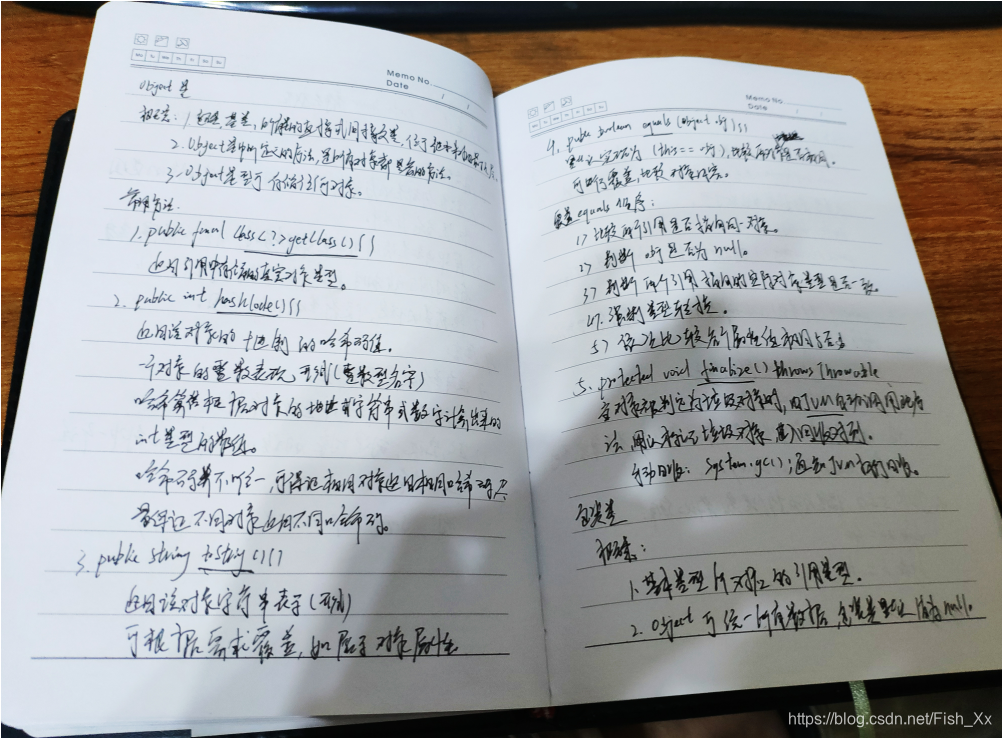 Memo No.
Date
Object 类
概念: 1. 超类、基类, 所有类的直接或间接父类, 位于继承树的最顶层。
2. Object类中所定义的方法, 是所有对象都具备的方法。
3. Object类型可存储任何对象。
常用方法:
1. public final class<?> getClass(){}
返回引用中存储的实际对象类型。
2. public int hashCode(){}
返回该对象的十进制的哈希码值。
一个对象的整数表现形式(整数型名字)
哈希算法根据对象的地址或字符串或数字计算出来的
int类型的数值。
哈希码并不唯一, 可保证相同对象返回相同哈希码, 尽
量保证不同对象返回不同哈希码。
3. public string toString(){}
返回该对象字符串表示(形式)
可根据需求覆盖, 如: 展示对象属性
Memo No.
Date
4. public boolean equals(Object obj){}
默认实现为 (this == obj), 比较两个地址是否相同。
可进行覆盖, 比较对象内容。
覆盖 equals 程序:
1> 比较两个引用是否指向同一对象。
2> 判断 obj 是否为 null。
3> 判断两个引用指向的实际对象类型是否一致。
4> 强制类型转换。
5> 依次比较各个属性值相同与否
5. protected void finalize() throws Throwable
当对象被判定为垃圾对象时, 由JVM自动调用此方
法, 用以标记垃圾对象, 进入回收队列。
手动回收: System.gc(); 通知JVM执行回收。
包装类
概念:
1. 基本类型所对应的引用类型。
2. Object 可统一所有数据, 包装类默认值为null。
https://blog.csdn.net/Fish_Xx